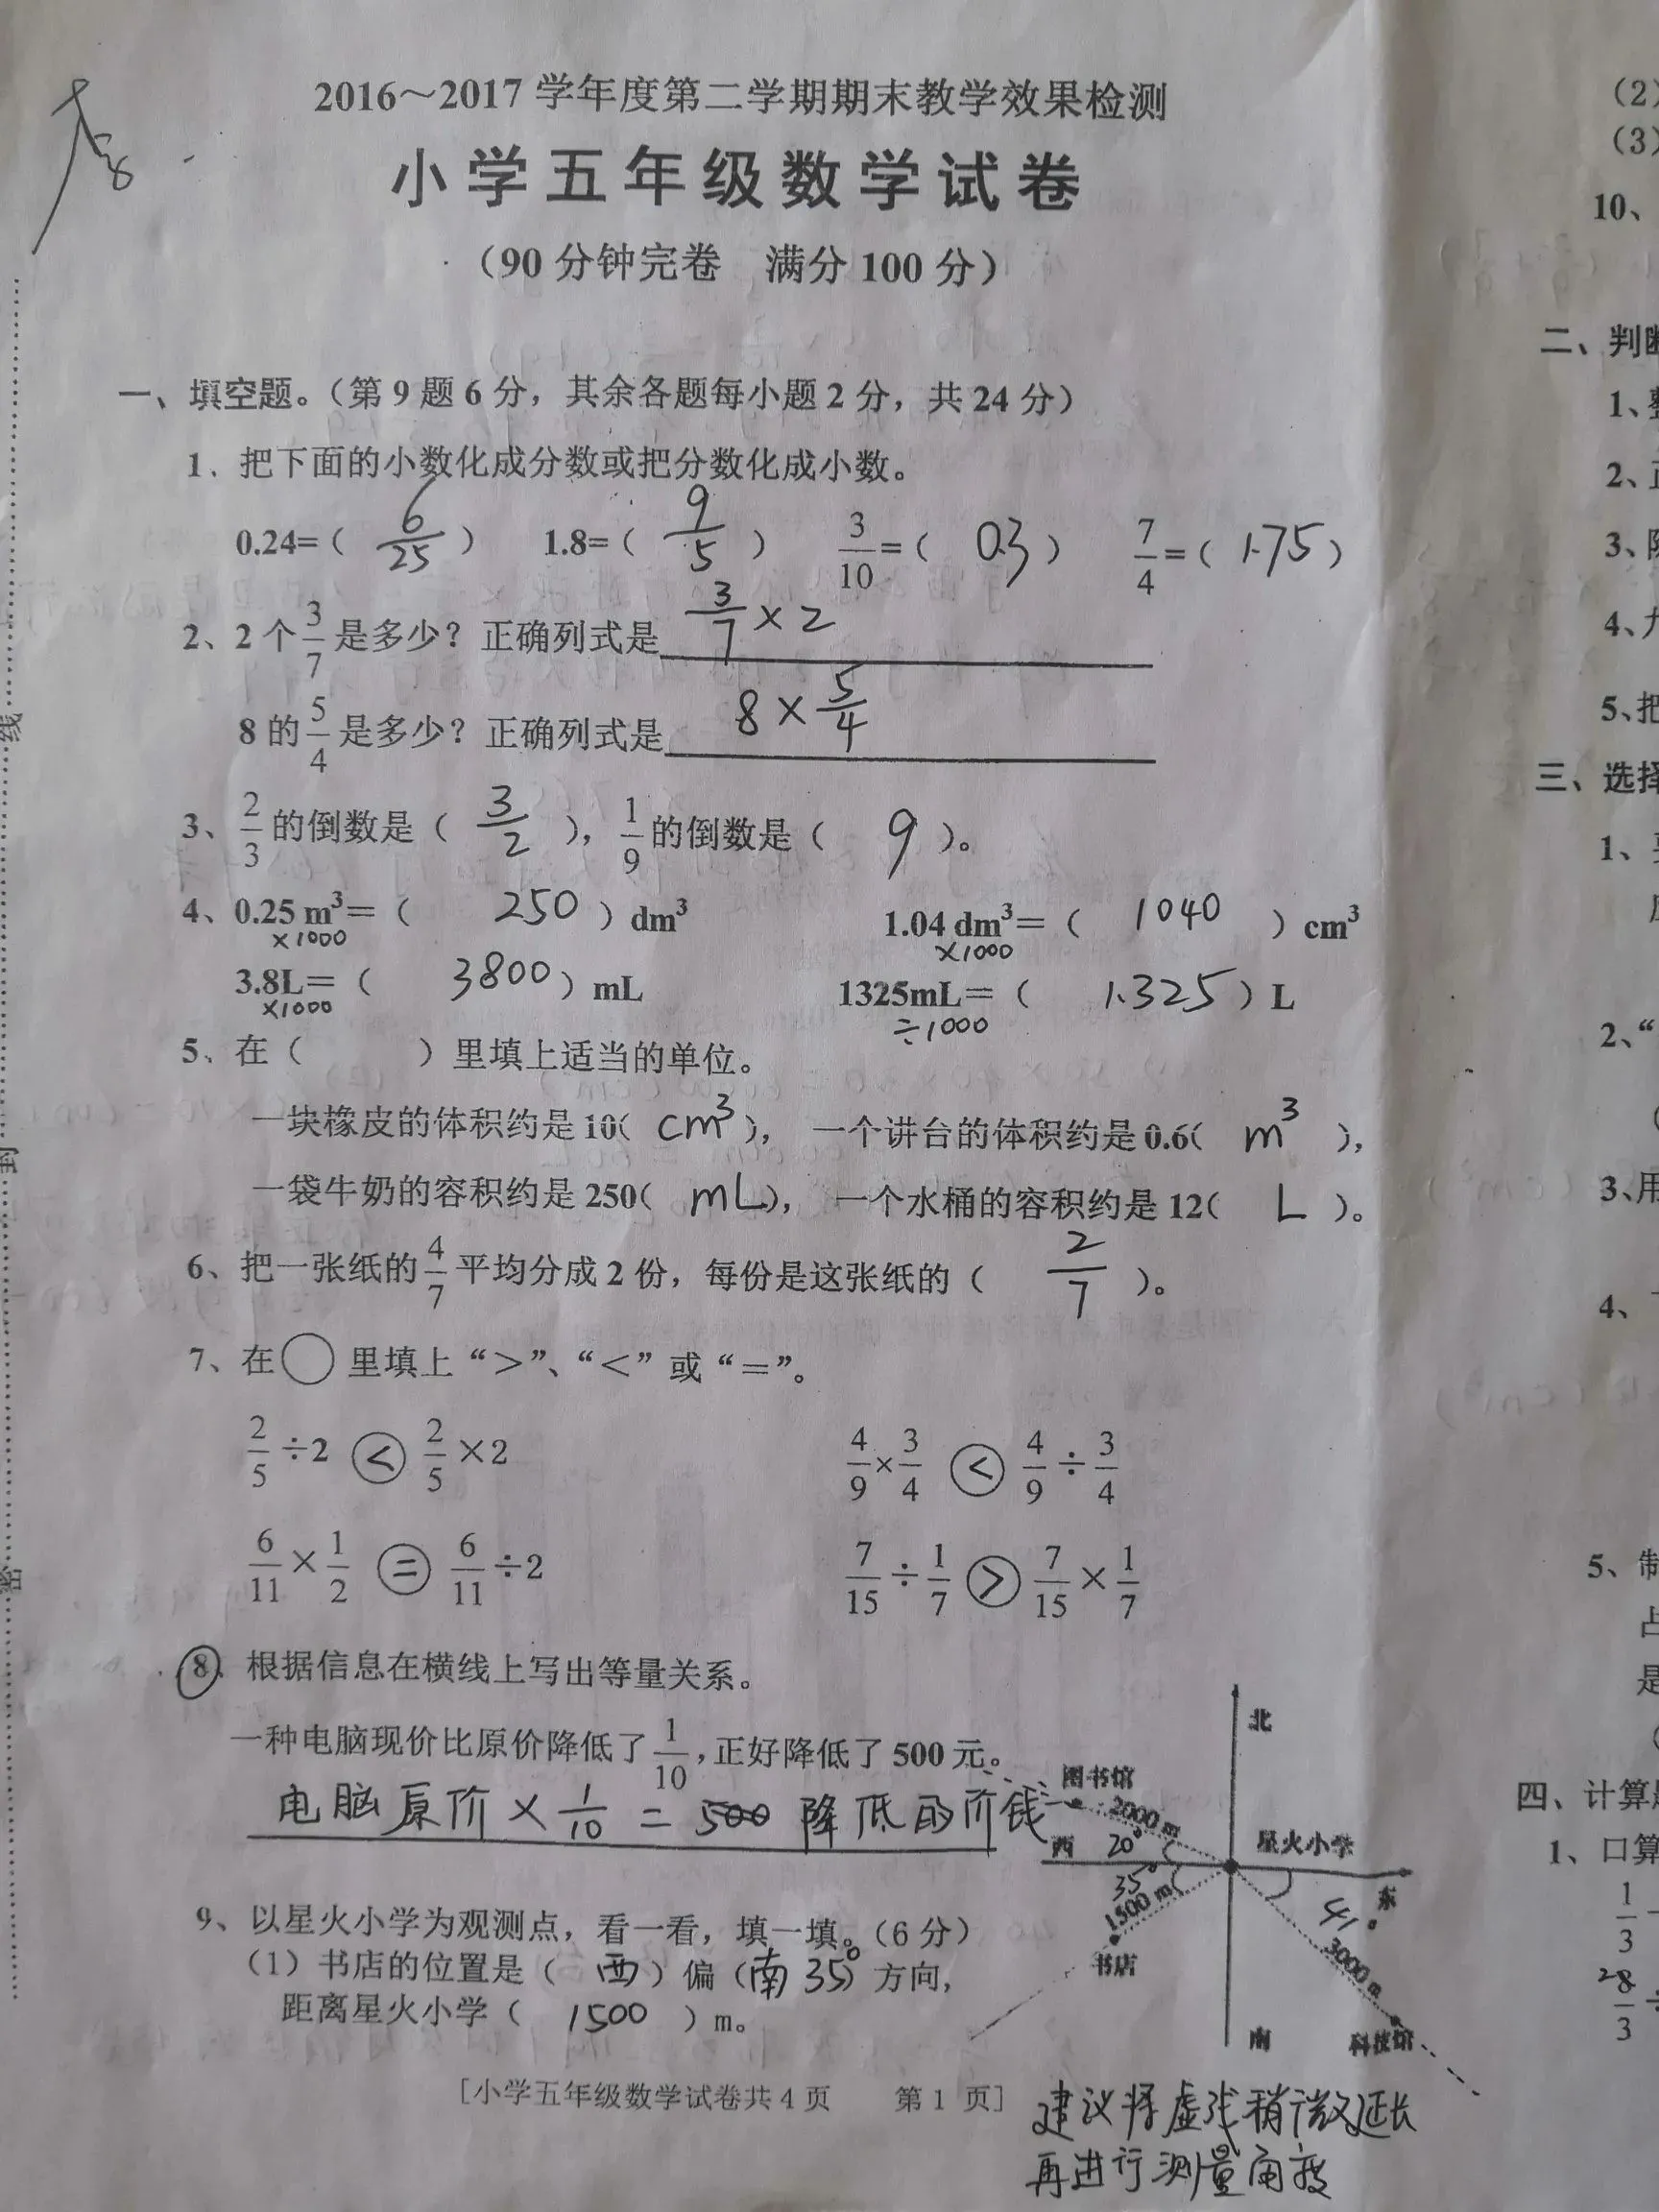 2016～2017学年度第二学期期末教学效果检测
小学五年级数学试卷
（90分钟完卷　满分100分）
一、填空题。（第9题6分，其余各题每小题2分，共24分）
1．把下面的小数化成分数或把分数化成小数。
0.24=（ 6/25 ） 1.8=（ 9/5 ） 3/10=（ 0.3 ） 7/4=（ 1.75 ）
2、2个3/7是多少？正确列式是 3/7×2
8的5/4是多少？正确列式是 8×5/4
3、2/3的倒数是（ 3/2 ），1/9的倒数是（ 9 ）。
4、0.25 m³=（ 250 ）dm³ 1.04 dm³=（ 1040 ）cm³
×1000 ×1000
3.8L=（ 3800 ）mL 1325mL=（ 1.325 ）L
×1000 ÷1000
5、在（　　）里填上适当的单位。
一块橡皮的体积约是10( cm³ )， 一个讲台的体积约是0.6( m³ )，
一袋牛奶的容积约是250( mL )， 一个水桶的容积约是12( L )。
6、把一张纸的4/7平均分成2份，每份是这张纸的（ 2/7 ）。
7、在○里填上“＞”、“＜”或“＝”。
2/5÷2 < 2/5×2 4/9×3/4 < 4/9÷3/4
6/11×1/2 = 6/11÷2 7/15÷1/7 > 7/15×1/7
8、根据信息在横线上写出等量关系。
一种电脑现价比原价降低了1/10，正好降低了500元。
电脑原价×1/10=500 降低的价钱
北
图书馆
2000 m
西 20° 星火小学
35° 东
1500 m 41°
书店 3000 m
南 科技馆
9、以星火小学为观测点，看一看，填一填。（6分）
（1）书店的位置是（ 西 ）偏（南35°）方向，
距离星火小学（ 1500 ）m。
[小学五年级数学试卷共4页　第1页]
建议将虚线稍微延长
再进行测量角度
线
封
密
(2)
(3)
10、
二、判断
1、整
2、正
3、
4、
5、把
三、选择
1、
2、“
3、用
4、
5、制
占
是
四、计算题
1、口算
1/3
8/3÷